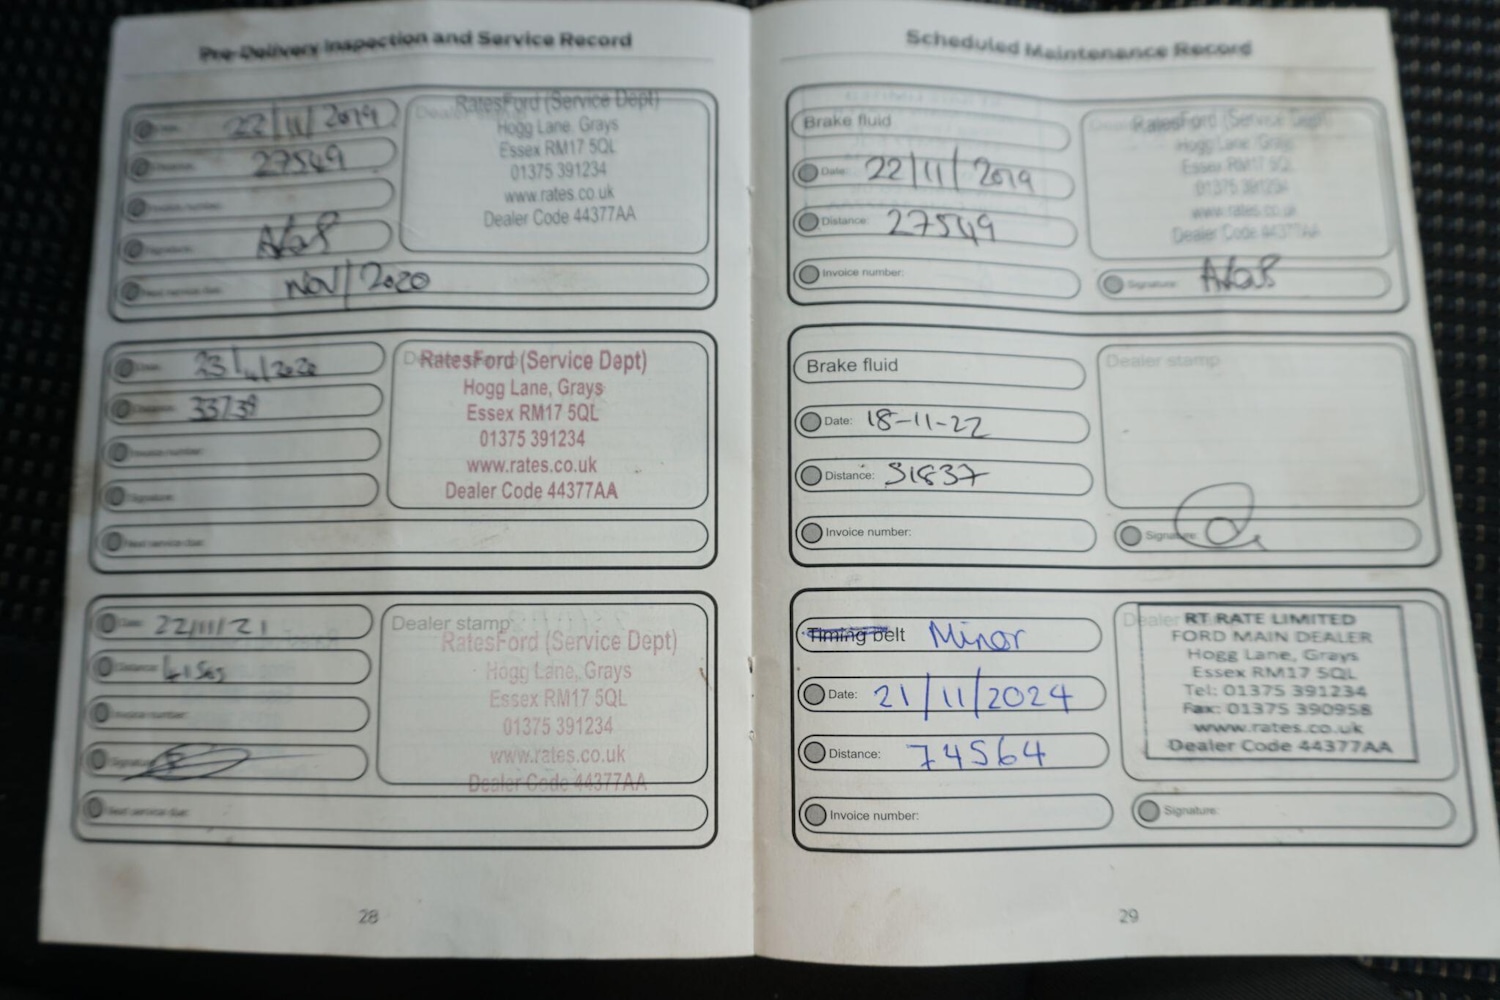 Pre-Delivery Inspection and Service Record
Date: 22/11/2019
27549
Invoice number:
Signature:
Nov/2020
Next service due:
Dealer stamp
RatesFord (Service Dept)
Hogg Lane, Grays
Essex RM17 5QL
01375 391234
www.rates.co.uk
Dealer Code 44377AA
33738
Invoice number:
Signature:
Next service due:
RatesFord (Service Dept)
Hogg Lane, Grays
Essex RM17 5QL
01375 391234
www.rates.co.uk
Dealer Code 44377AA
Date: 22/11/21
Distance:
Invoice number:
Signature:
Next service due:
Dealer stamp:
RatesFord (Service Dept)
Hogg Lane, Grays
Essex RM17 5QL
01375 391234
www.rates.co.uk
Dealer Code 44377AA
28
Scheduled Maintenance Record
Brake fluid
Date: 22/11/2019
Distance: 27549
Invoice number:
RatesFord (Service Dept)
Hogg Lane, Grays
Essex RM17 5QL
01375 391234
www.rates.co.uk
Dealer Code 44377AA
Signature:
Brake fluid
Date: 18-11-22
Distance: 51837
Invoice number:
Dealer stamp
Signature:
Timing belt Minor
Date: 21/11/2024
Distance: 74564
Invoice number:
Dealer
RT RATE LIMITED
FORD MAIN DEALER
Hogg Lane, Grays
Essex RM17 5QL
Tel: 01375 391234
Fax: 01375 390958
www.rates.co.uk
Dealer Code 44377AA
Signature:
29